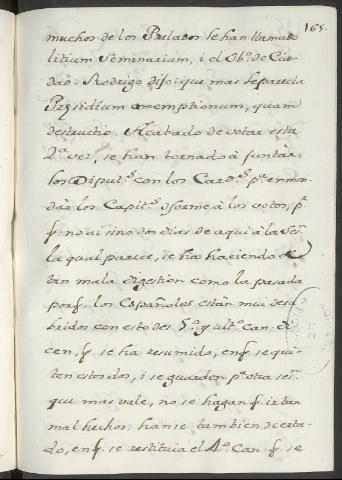 165.
muchos de los Prelados se han llamado
litium Seminarium, i el Obº. de Ciu-
dad-Rodrigo dijo: que mas le parecia
Præsidium exemptionum, quam
destructio. Acabado de votar esta
2ª. vez, se han tornado à juntar
los Diputs. con los Cards. pª. enmen-
dar los Capits. conforme à los votos, pr.
q. no ai sino dos dias de aqui à la Sesn.
la qual parece, se ha haciendo de
tan mala digestion como la pasada
porq. los Españoles estàn mui desa-
bridos con esto del 5º. y ultº. Can. di-
cen, q. se ha resumido, en q. se qui-
ten estos dos, i se guarden pª. otra sesn.
que mas vale, no se hagan q. ir tan
mal hechos: hanse tambien acerta-
do, en q. se restituia el 4º. Can. q. se